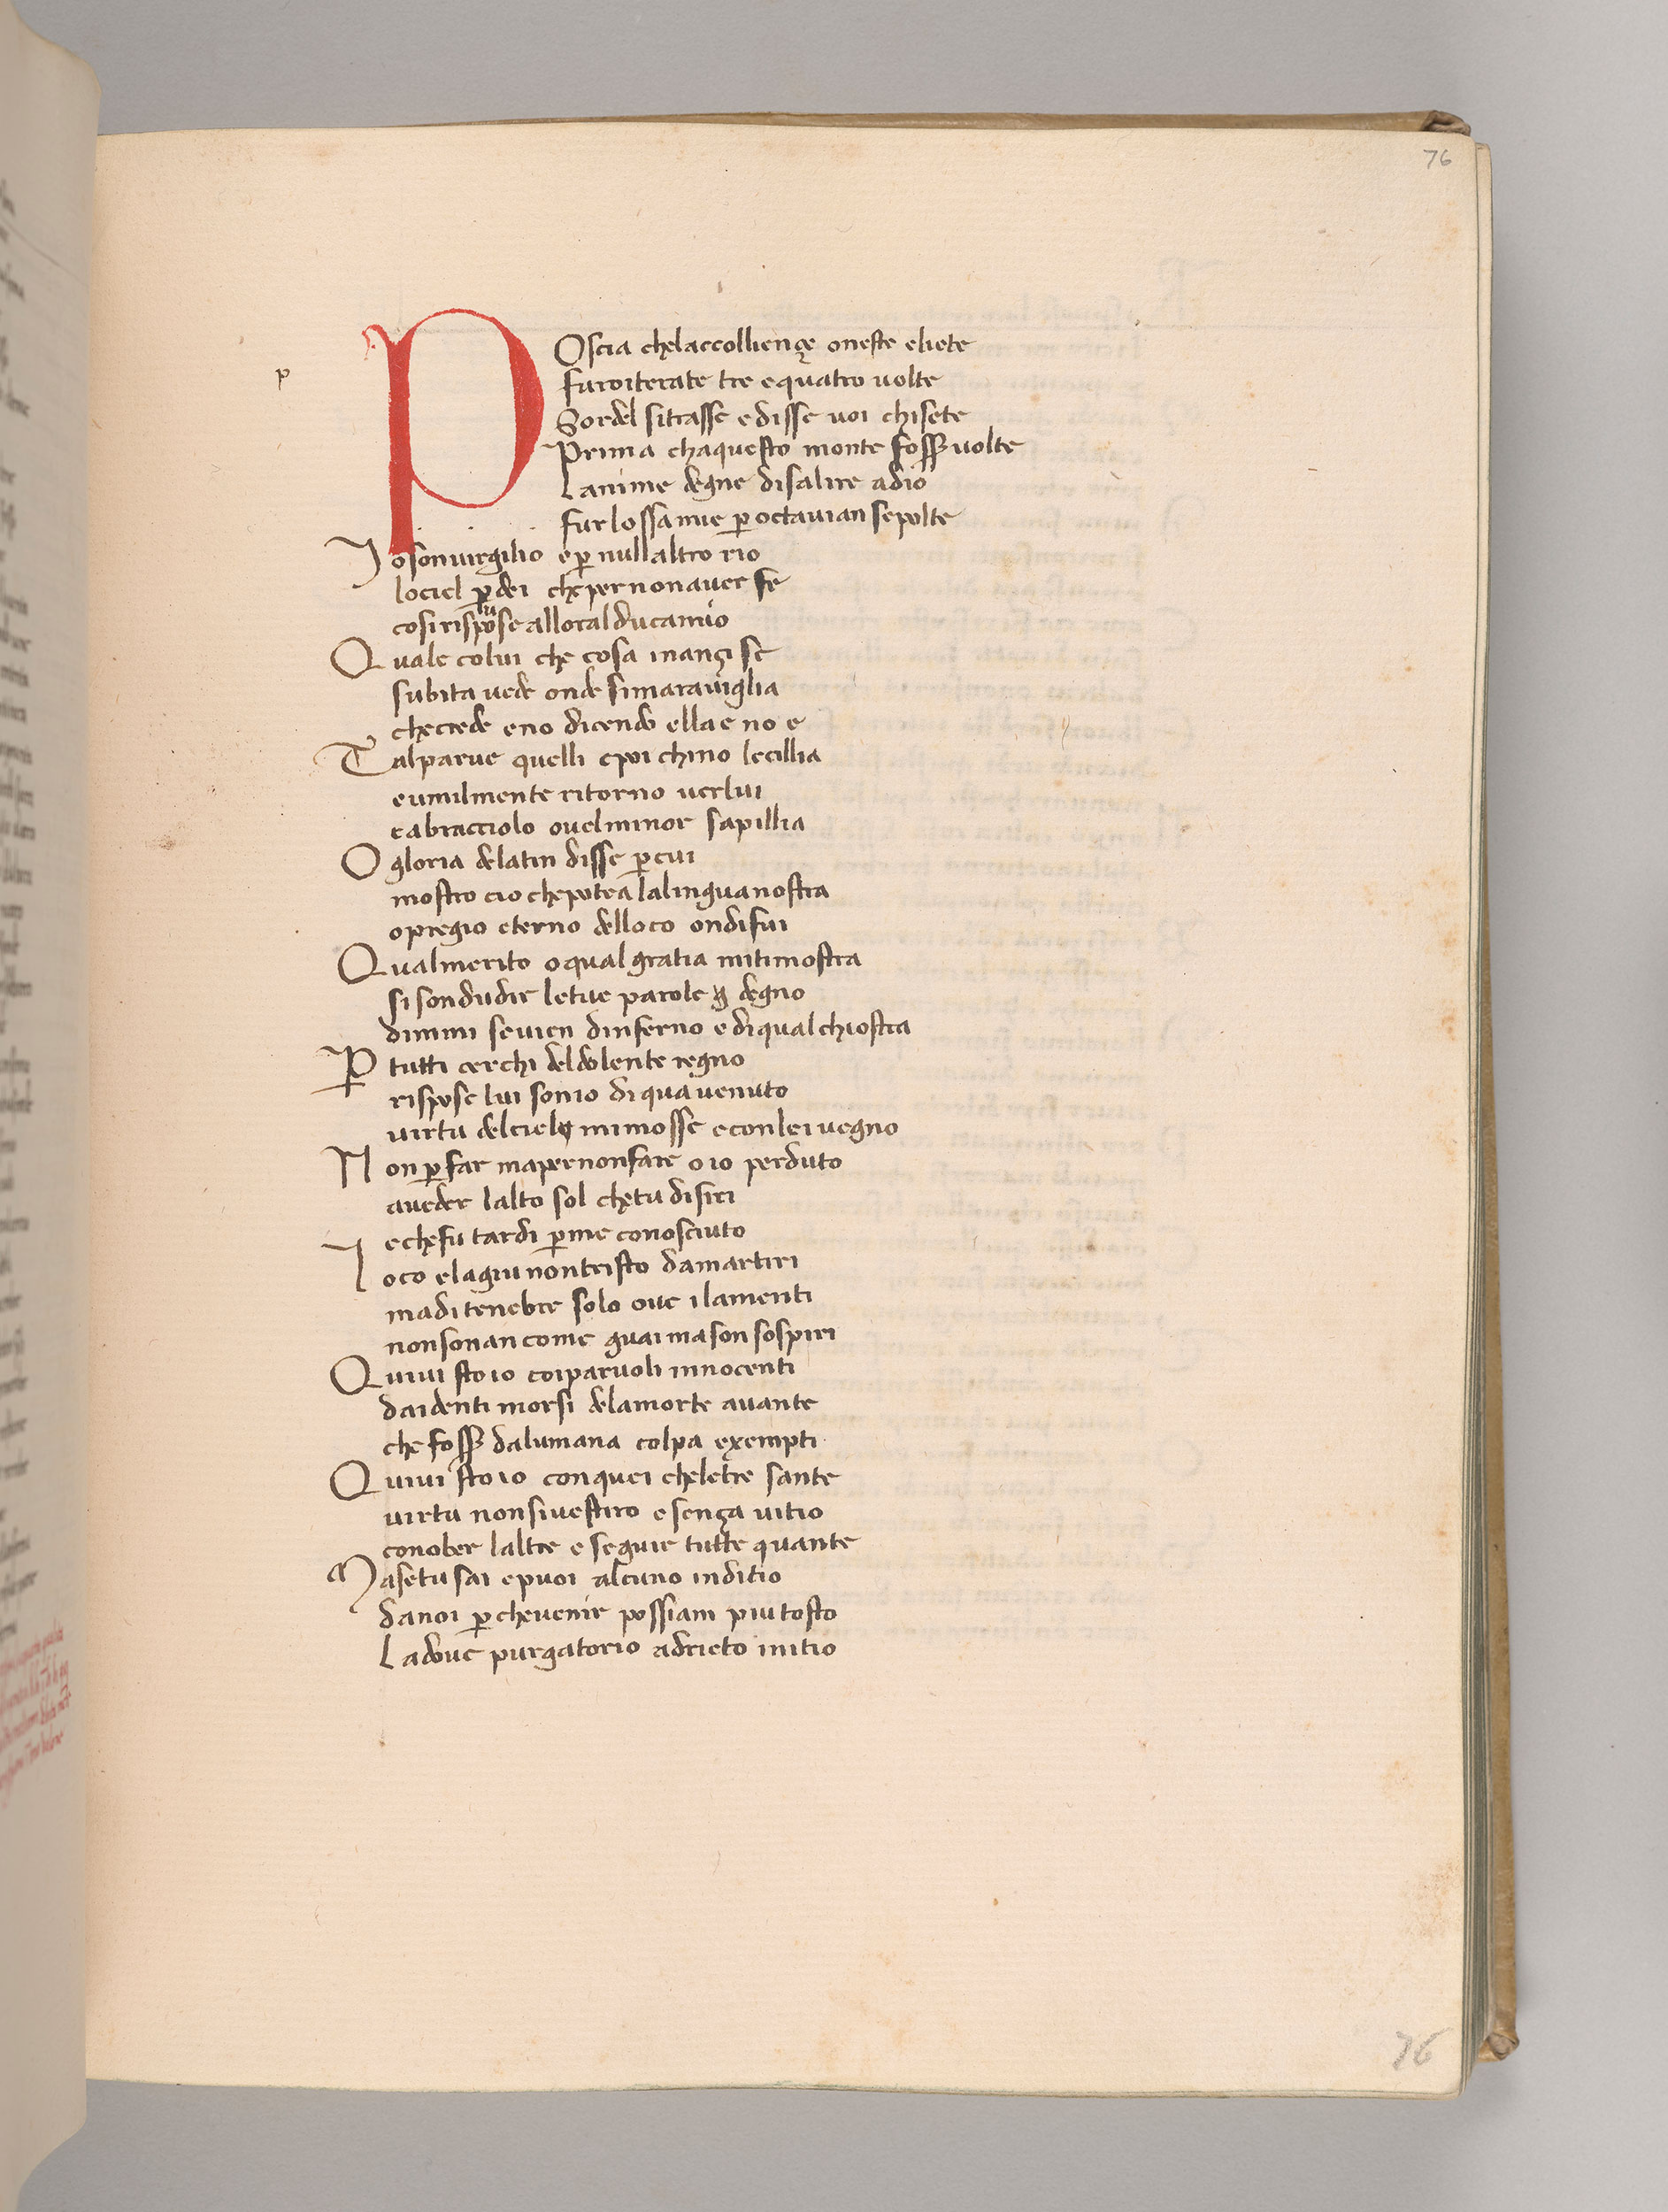 76
p
POscia chelaccolliençe oneste eliete
furoiterate tre equatro uolte
Sordel sitrasse edisse uoi chisete
Prima chaquesto monte fosser uolte
Lanime degne disalire adio
fur lossamie ꝑ octauian sepolte
Josonuirgilio eꝑ nullaltro rio
lociel ꝑdei chepernonauer fe
cosirispuose alloralducamio
Quale colui che cosa inançi se
subita uede onde simarauiglia
checrede eno dicendo ellae no e
Talparue quelli epoi chino lecillia
eumilmente ritorno uerlui
eabracciolo ouelminor sapillia
O gloria delatin disse ꝑcui
mostro cio chepotea lalinguanostra
opregio eterno delloco ondifui
Qualmerito oqual gratia mitimostra
sisondudir letue parole degno
dimmi seuien dinferno e diqual chiostra
Ꝑ tutti cerchi deldolente regno
rispose lui sonio diqua uenuto
uirtu delcielo mimosse econlei uegno
Non ꝑ far mapernonfare oio perduto
aueder lalto sol chetu disiri
echefu tardi ꝑme conosciuto
Loco elagiu nontristo damartiri
maditenebre solo oue ilamenti
nonsonan come guai mason sospiri
Quiui sto io coiparuoli innocenti
daidenti morsi delamorte auante
che fosser dalumana colpa exempti
Quiui sto io conquei cheletre sante
uirtu nonsiuestiro esença uitio
conober laltre e seguir tutte quante
Masetu sai epuoi alcuno inditio
danoi ꝑ cheuenir possiam piu tosto
Ladoue purgatorio adricto initio
76